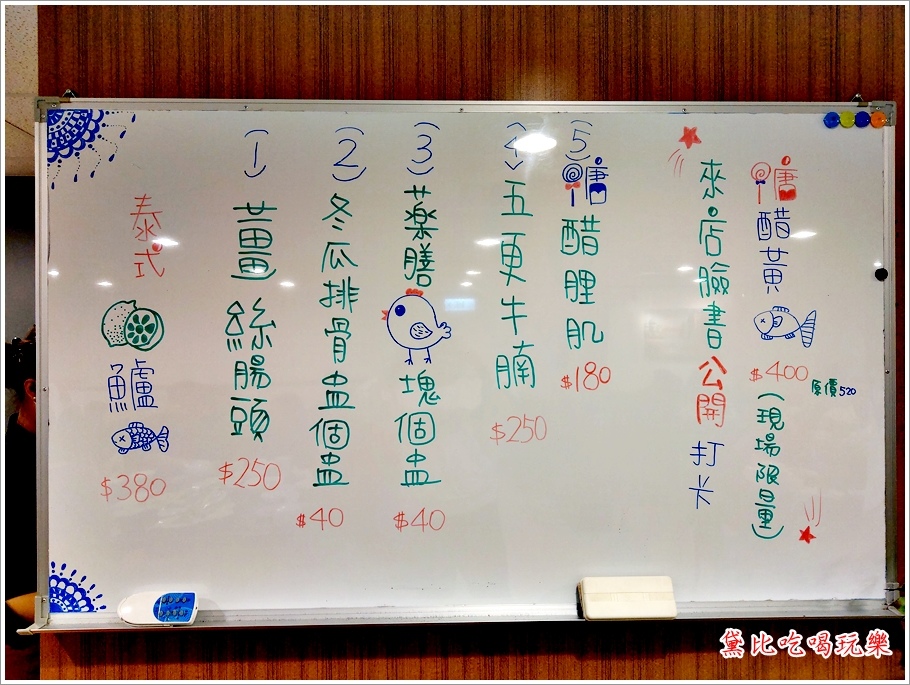 泰式
鱸
$380
(1)
薑絲腸頭
$250
(2)
冬瓜排骨盅個盅
$40
(3)
藥膳
塊個盅
$40
(4)
五更牛腩
$250
(5)
糖醋里肌
$180
來店臉書公開打卡
糖醋黃
$400
原價520
(現場限量)
黛比吃喝玩樂